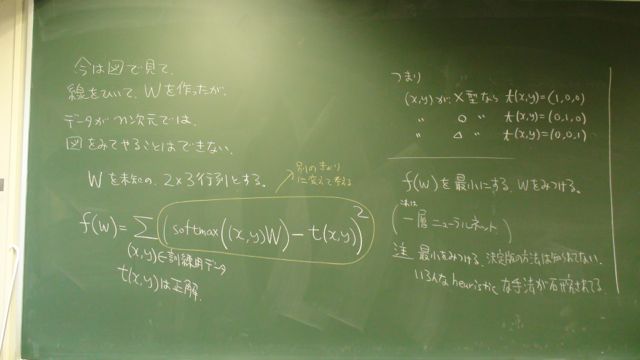 今は図で見て、
線をひいて、Wを作ったが、
データがn次元では、
図をみてやることはできない。
Wを未知の、2×3行列とする。
別のきょり
に変えて考える
f(W) = Σ (softmax((x,y)W) − t(x,y))²
(x,y)∈訓練用データ
t(x,y)は正解.
つまり
(x,y)が × 型なら t(x,y)=(1,0,0)
〃 ○ 〃 t(x,y)=(0,1,0)
〃 △ 〃 t(x,y)=(0,0,1)
f(W)を最小にする、Wをみつける。
これは
(一層ニューラルネット)
注 最小をみつける、決定版の方法は知られてない.
いろんなheuristicな手法が研究されてる.